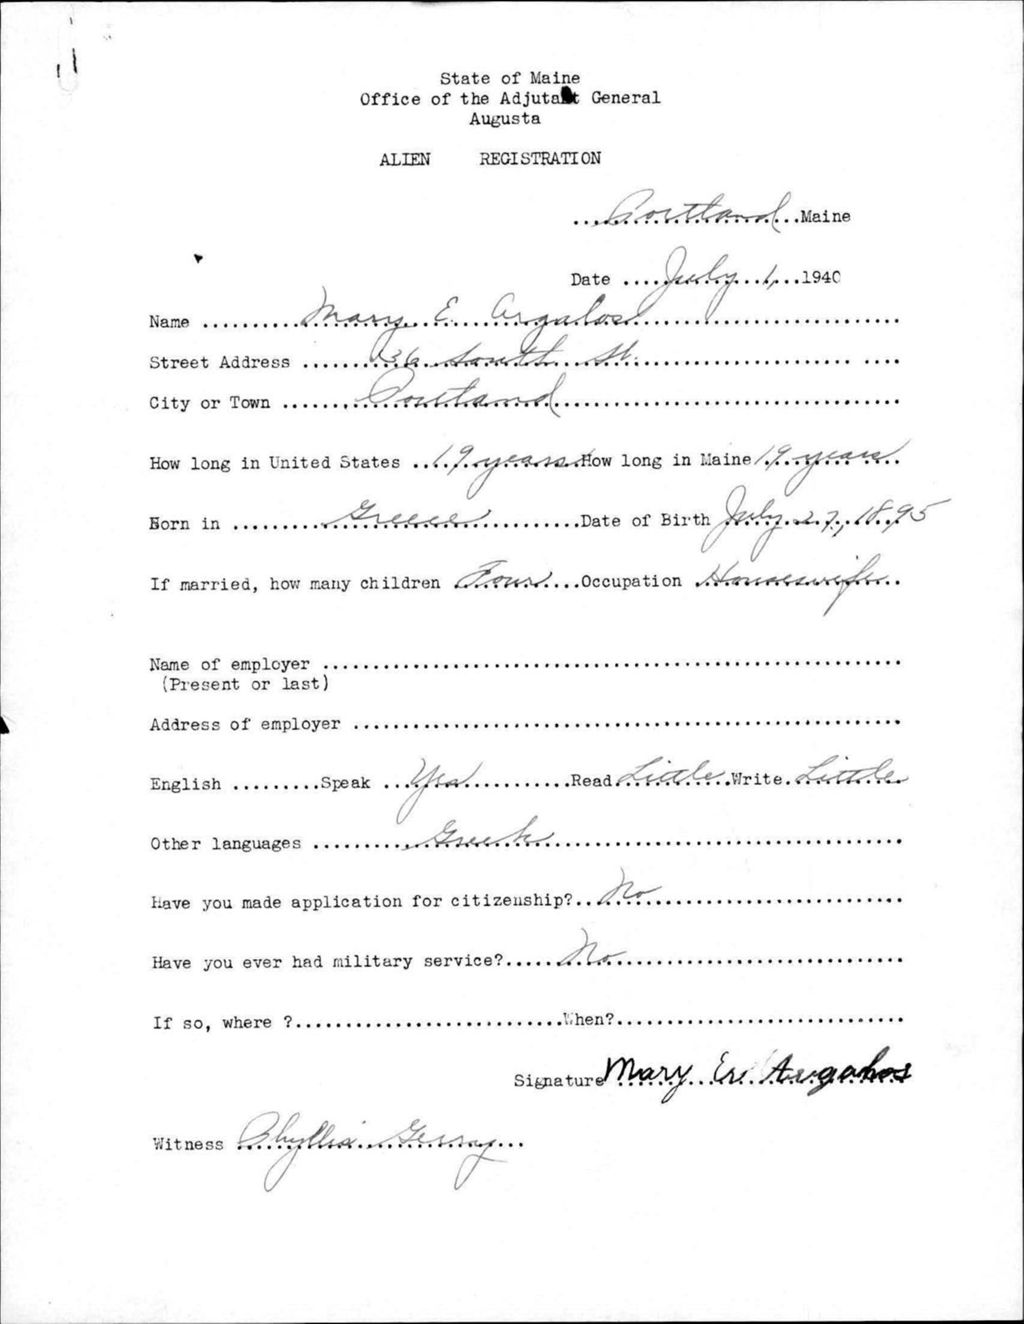 State of Maine
Office of the Adjutant General
Augusta
ALIEN REGISTRATION
Portland Maine
Date July 1, 1940
Name Mary E. Argalos
Street Address South St.
City or Town Portland
How long in United States 19 years How long in Maine 19 years
Born in Greece Date of Birth July 27, 1895
If married, how many children Four Occupation Housewife
Name of employer
(Present or last)
Address of employer
English Speak Yes Read Little Write Little
Other languages Greek
Have you made application for citizenship? No
Have you ever had military service? No
If so, where ? When?
Signature Mary
Witness Phyllis